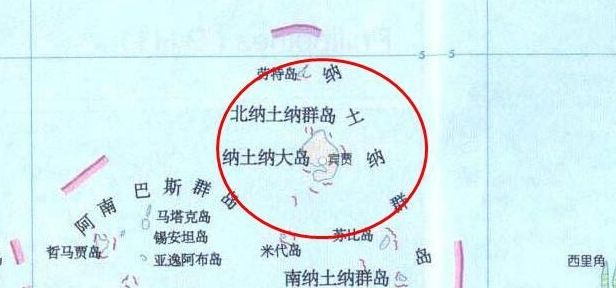 5 5
劳特岛
纳土纳群岛
北纳土纳群岛
纳土纳大岛 宾贾
阿南巴斯群岛
马塔克岛
锡安坦岛
哲马贾岛
亚逸阿布岛
米代岛
苏比岛
南纳土纳群岛
西里角